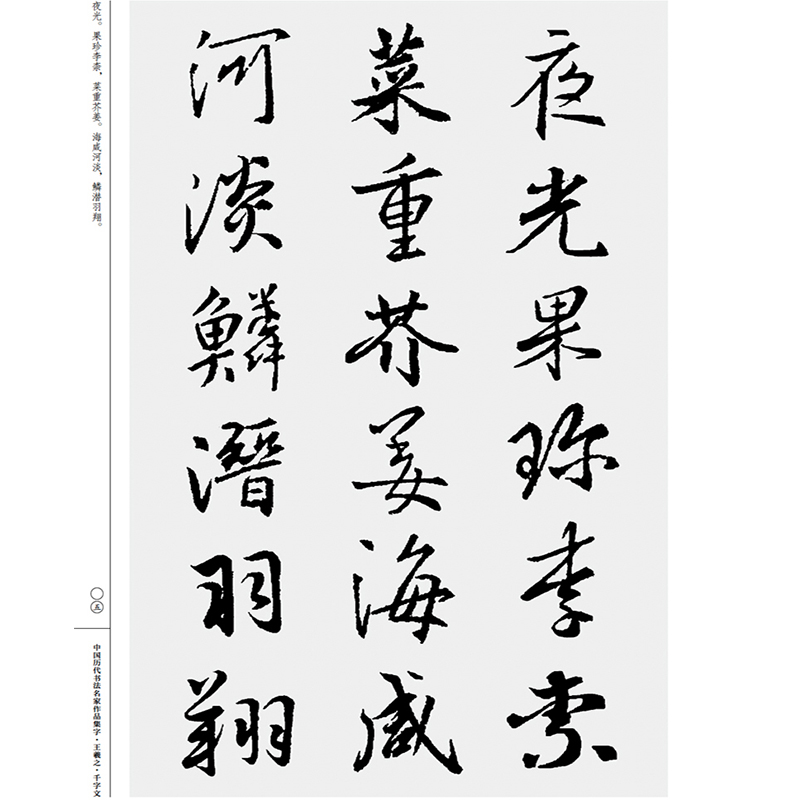 夜光果珍李柰
菜重芥姜海咸
河淡鱗潛羽翔
夜光。果珍李柰，菜重芥姜。海咸河淡，鳞潜羽翔。
〇五
中国历代书法名家作品集字·王羲之·千字文